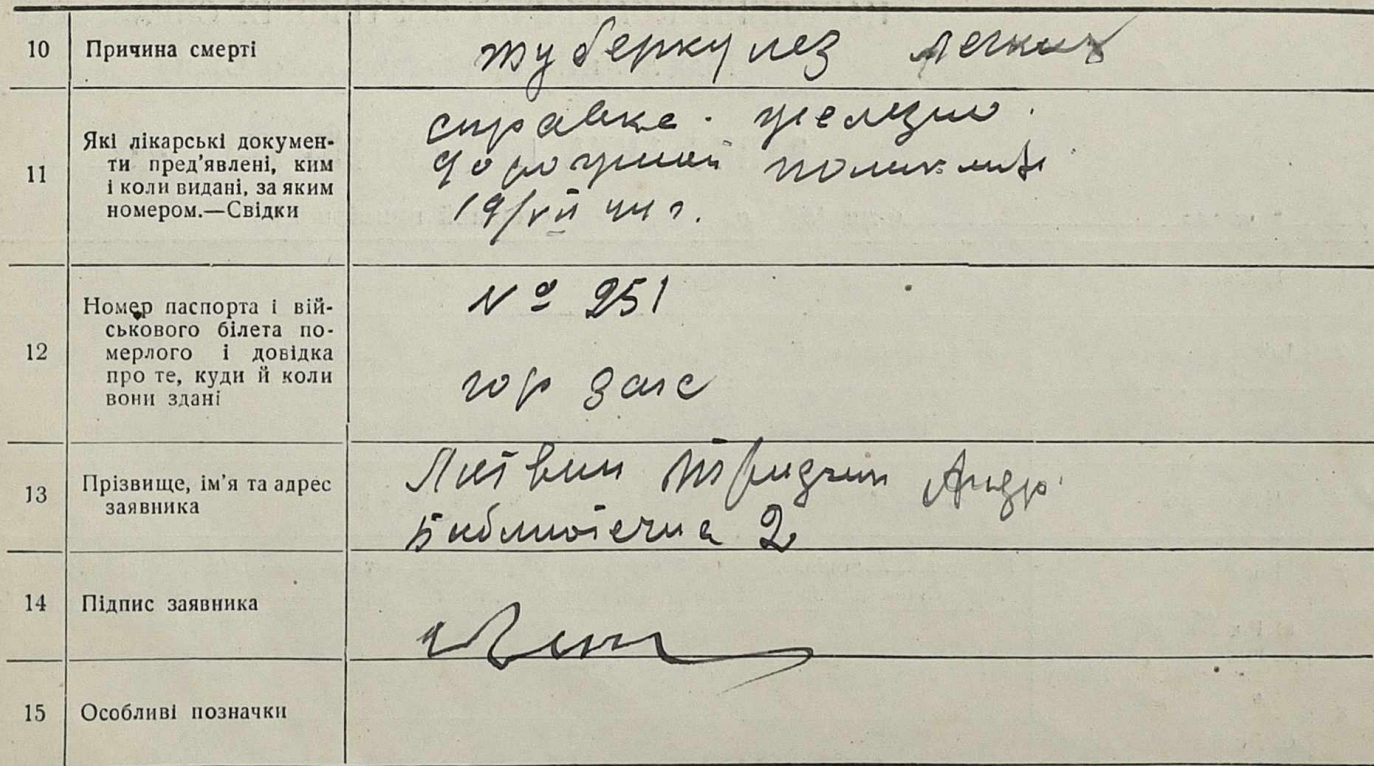 10 Причина смерті
туберкулез легких
11 Які лікарські докумен-
ти пред'явлені, ким
і коли видані, за яким
номером.—Свідки
справка. железно
дорожной поликли
19/VII 44 г.
12 Номер паспорта і вій-
ськового білета по-
мерлого і довідка
про те, куди й коли
вони здані
№ 251
гор загс
13 Прізвище, ім'я та адрес
заявника
Литвин Андр
Библиотечна 2
14 Підпис заявника
15 Особливі позначки